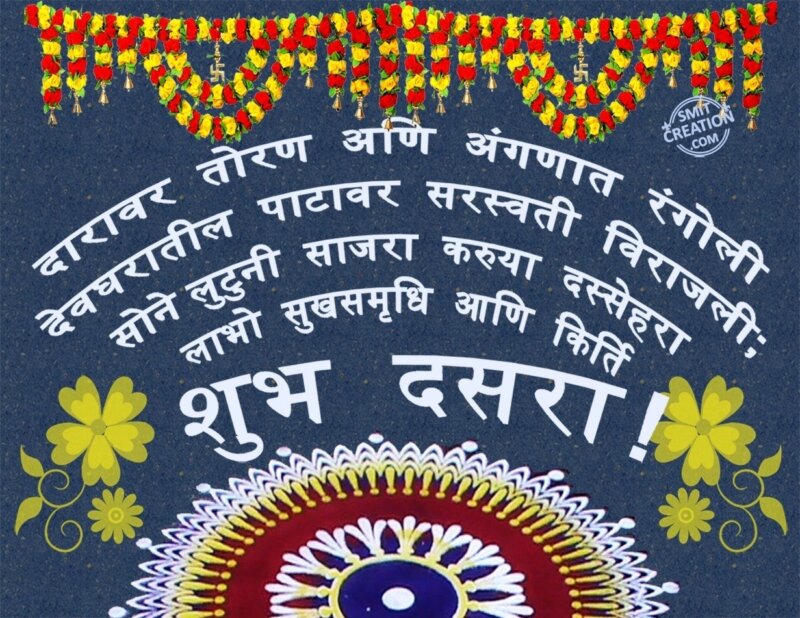 SMIT
CREATION
.COM
दारावर तोरण अणि अंगणात रंगोली
देवघरातील पाटावर सरस्वती विराजली;
सोने लुटुनी साजरा करुया दस्सेहरा
लाभो सुखसमृधि आणि किर्ति
शुभ दसरा!